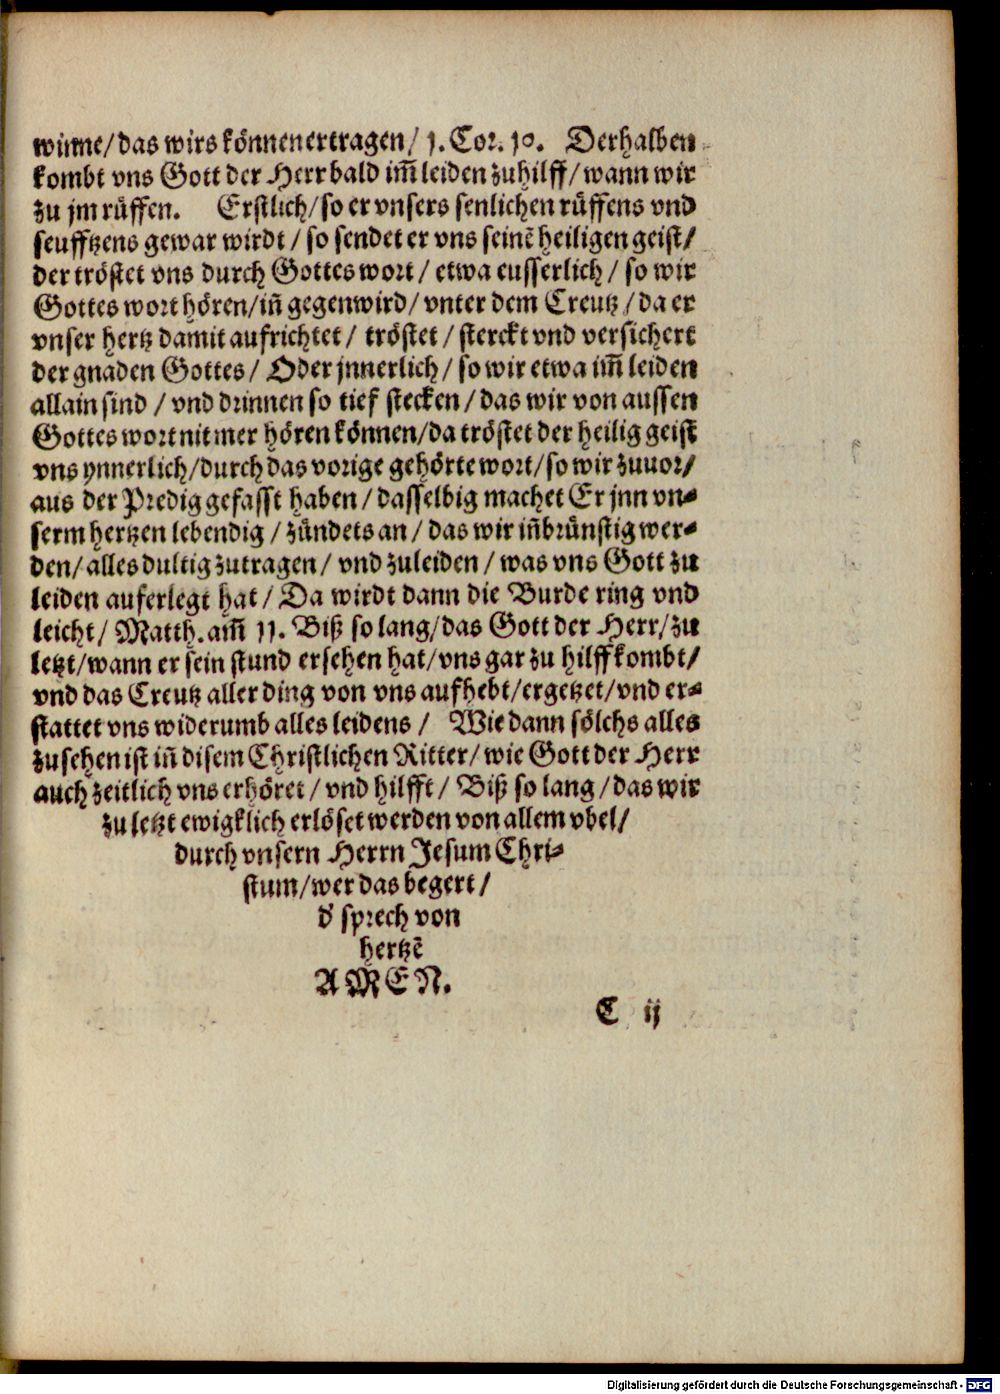 winne/das wirs können ertragen/ 1. Cor. 10. Derhalben
kombt vns Gott der Herr bald im̃ leiden zuhilff/wann wir
zu jm rüffen. Erstlich/so er vnsers senlichen rüffens vnd
seufftzens gewar wirdt/so sendet er vns seinẽ heiligen geist/
der tröstet vns durch Gottes wort/etwa eusserlich/so wir
Gottes wort hören/iñ gegenwird/vnter dem Creutz/da er
vnser hertz damit aufrichtet/ tröstet/sterckt vnd versichert
der gnaden Gottes/ Oder jnnerlich/so wir etwa im̃ leiden
allain sind/vnd drinnen so tief stecken/das wir von aussen
Gottes wort nit mer hören können/da tröstet der heilig geist
vns ynnerlich/durch das vorige gehörte wort/so wir zuuor/
aus der Predig gefasst haben/dasselbig machet Er jnn vn-
serm hertzen lebendig/zündets an/das wir iñbrünstig wer-
den/alles dultig zutragen/vnd zuleiden/was vns Gott zu
leiden auferlegt hat/ Da wirdt dann die Burde ring vnd
leicht/ Matth. am̃ 11. Biß so lang/das Gott der Herr/zu
letzt/wann er sein stund ersehen hat/vns gar zu hilff kombt/
vnd das Creutz aller ding von vns aufhebt/ergetzet/vnd er-
stattet vns widerumb alles leidens/ Wie dann sölchs alles
zusehen ist iñ disem Christlichen Ritter/wie Gott der Herr
auch zeitlich vns erhöret/vnd hilfft/ Biß so lang/das wir
zu letzt ewigklich erlöset werden von allem vbel/
durch vnsern Herrn Jesum Chri-
stum/wer das begert/
d' sprech von
hertzẽ
AMEN.
C ij
Digitalisierung gefördert durch die Deutsche Forschungsgemeinschaft - DFG